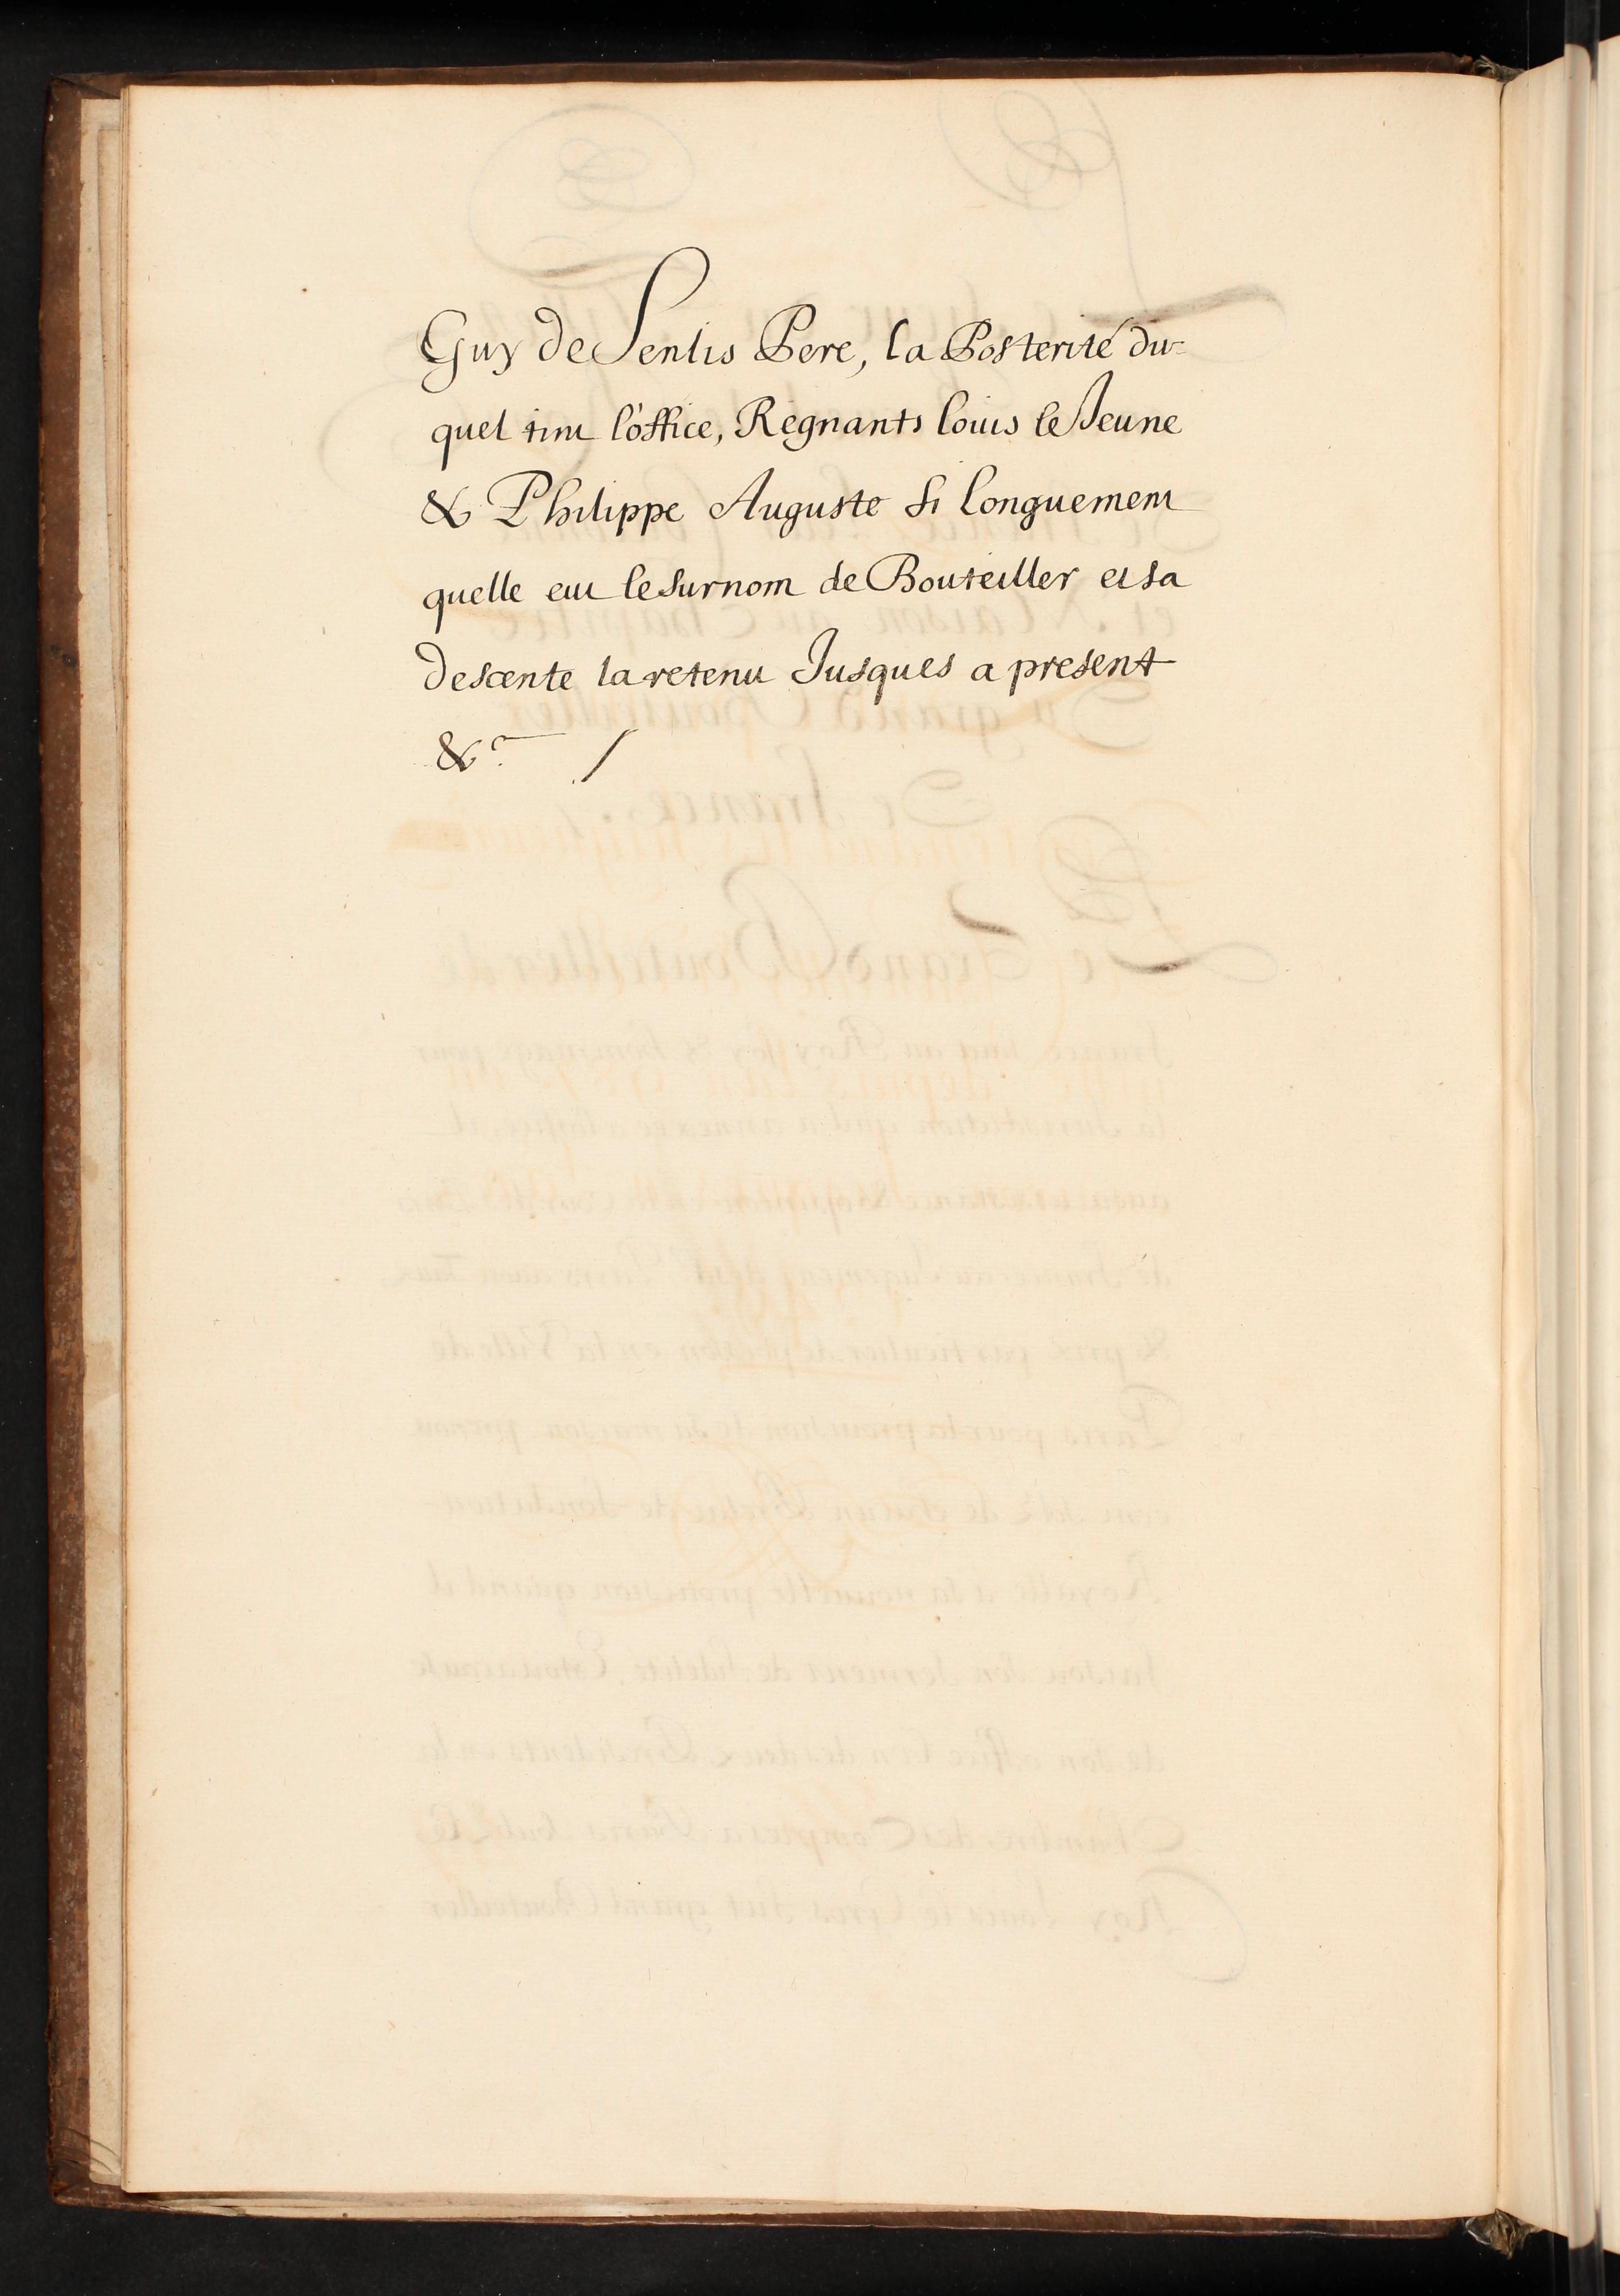 Guy de Senlis Pere, la Posterité du-
quel tint l'office, Regnants Louis le Jeune
& Philippe Auguste si longuement
quelle eut le surnom de Bouteiller et sa
descente la retenu Jusques a present
&c. /